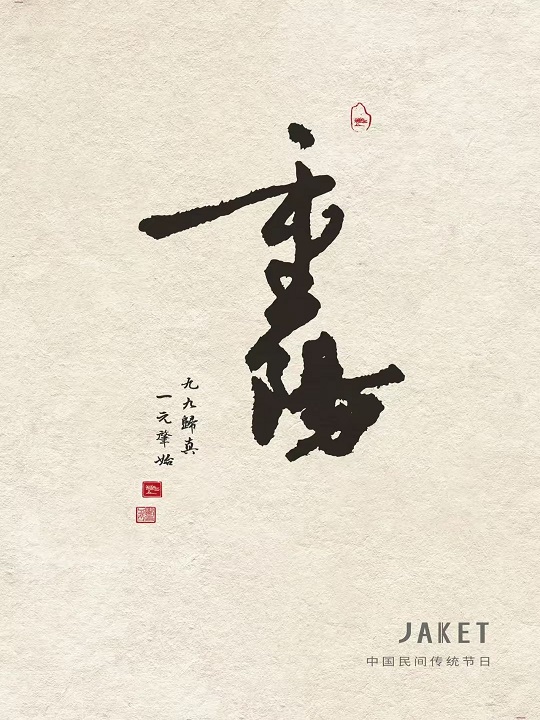 重陽
九九歸真
一元肇始
JAKET
中国民间传统节日